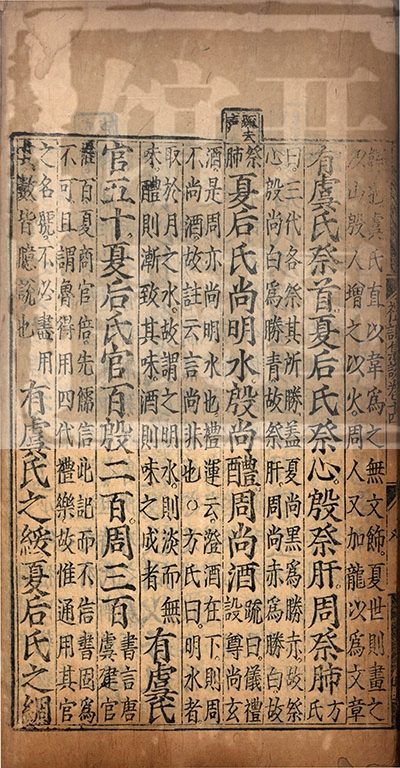 韠也虞氏直以韋為之無文飾夏世則畫之
以山殷人增之以火周人又加龍以為文章
有虞氏祭首夏后氏祭心殷祭肝周祭肺方
氏
曰三代各祭其所勝蓋夏尚黑為勝赤故祭
心殷尚白為勝青故祭肝周尚赤為勝白故
祭
肺
夏后氏尚明水殷尚醴周尚酒
疏曰儀禮
設尊尚玄
酒是周亦尚明水也禮運云澄酒在下則周
不尚酒故註云言尚非也○方氏曰明水者
取於月之水故謂之明水則淡而無
味醴則漸致其味酒則味之成者
有虞氏
官五十夏后氏官百殷二百周三百
書言唐
虞建官
惟百夏商官倍先儒信此記而不信書固為
不可且謂魯得用四代禮樂故惟通用其官
之名號不必盡用
其數皆臆說也
有虞氏之綏夏后氏之綢